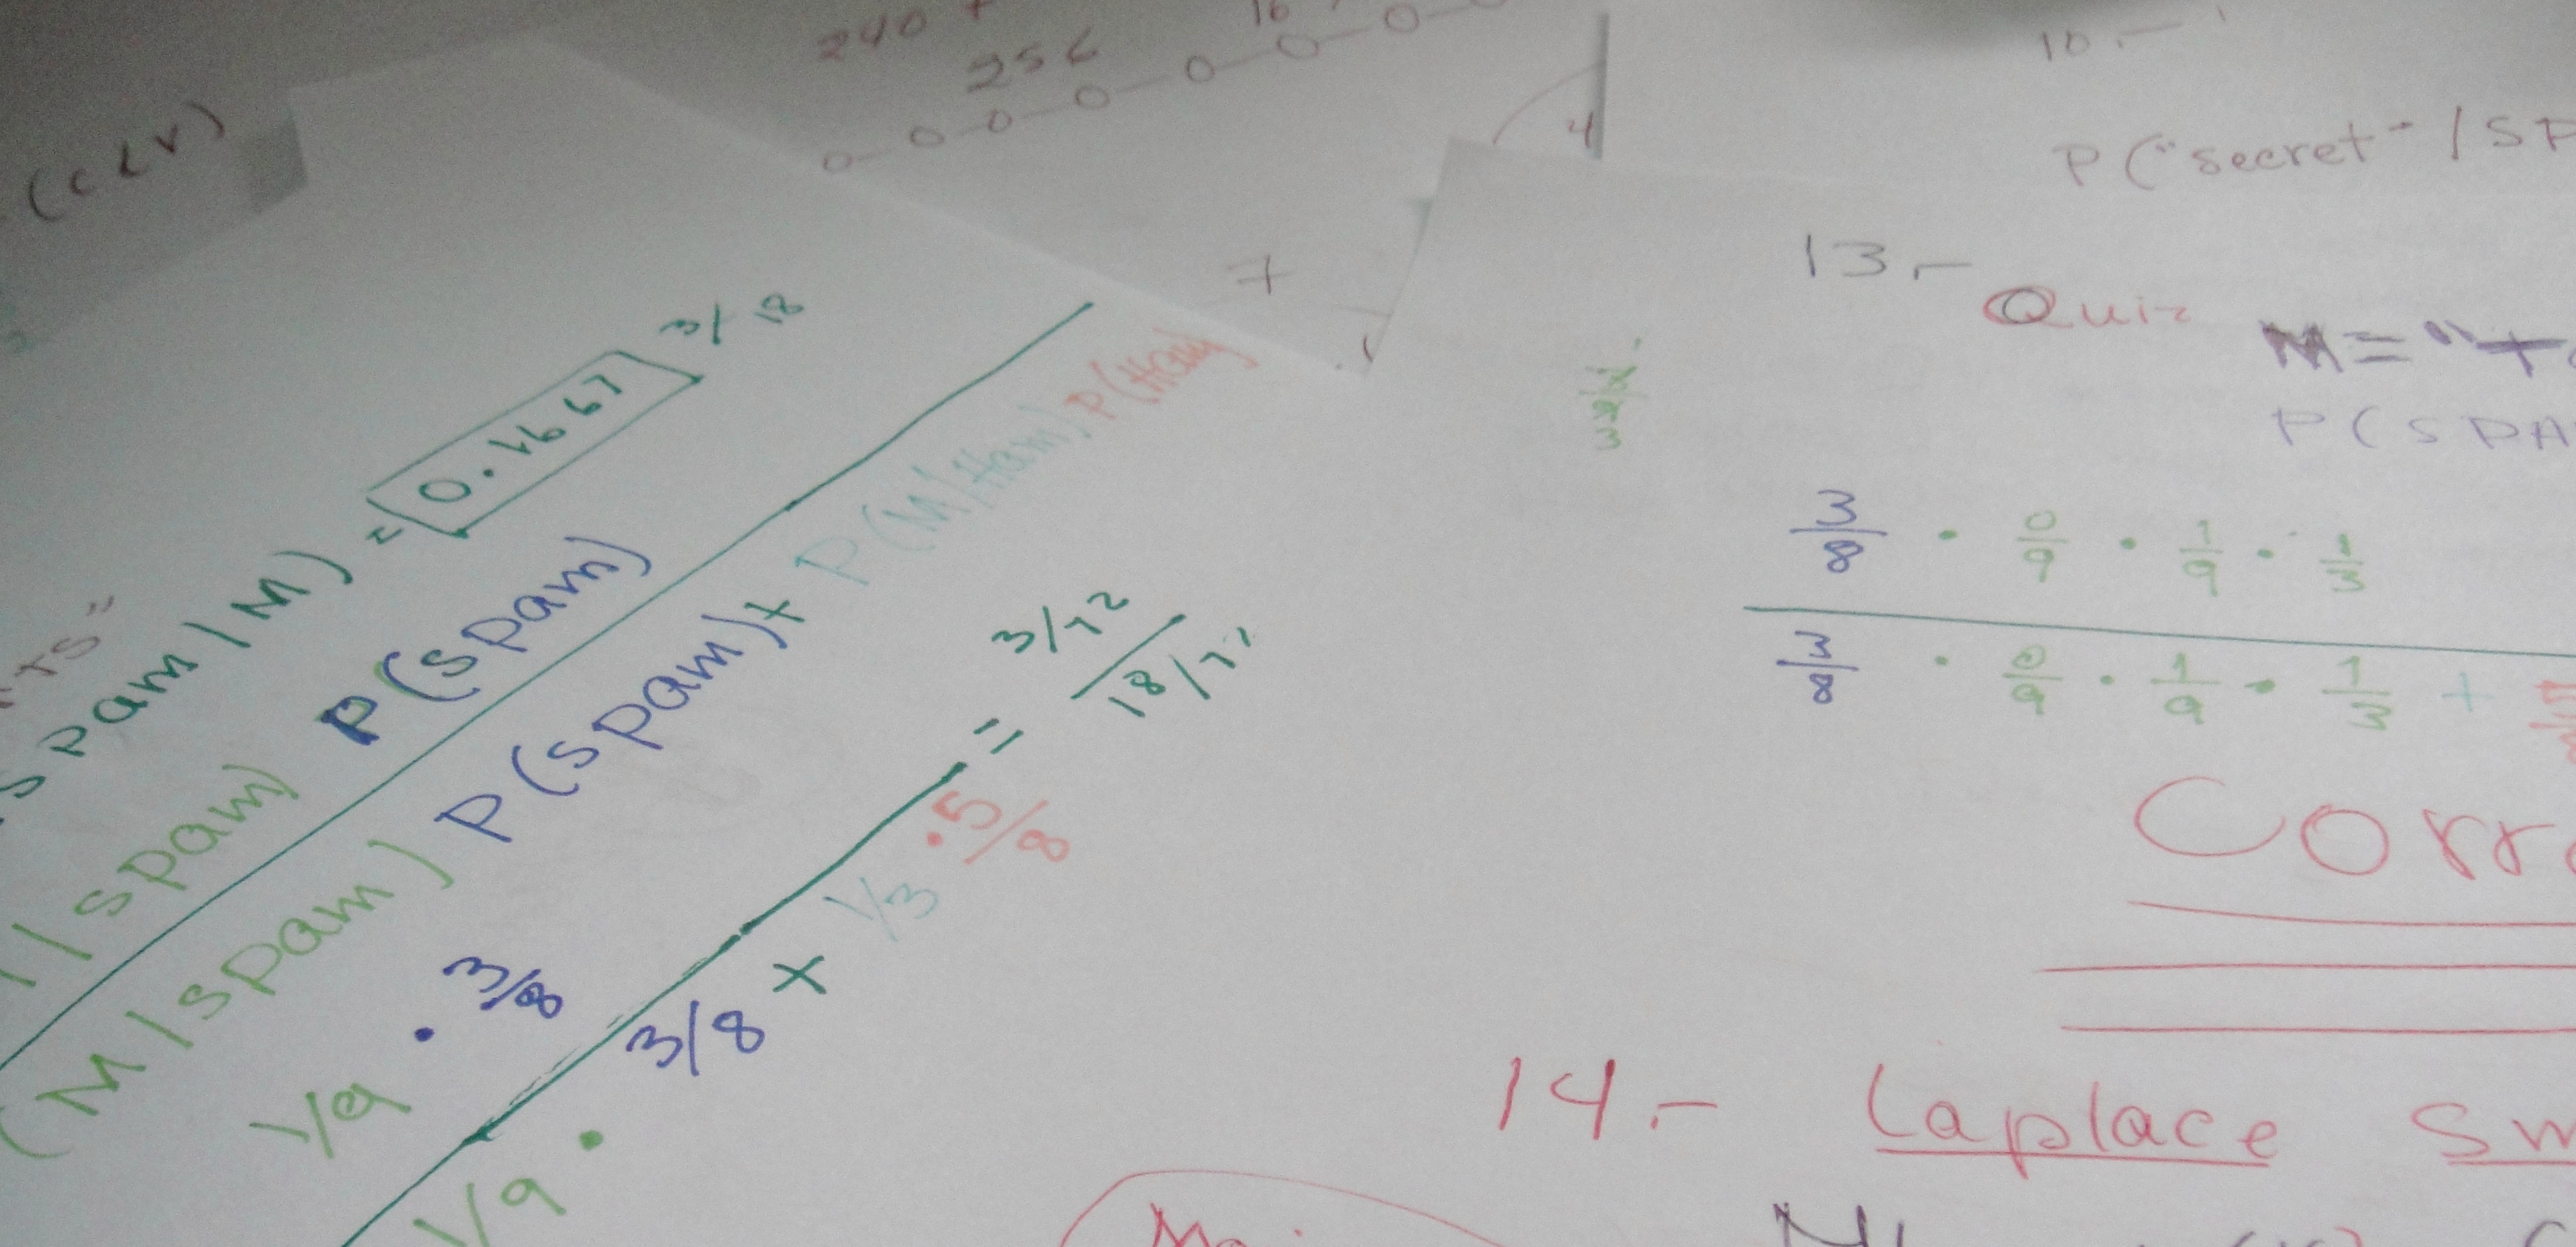 240 +
256
16
0-0-0-0-0-0-0
4
7
(CLV)
spam | M) = 0.1667 3/18
| spam) P(spam)
(M | spam) P(spam) + P(M|Ham) P(Ham)
1/9 · 3/8
1/9 · 3/8 + 1/3 · 5/8 = 3/72
18/72
10.-
P("secret" / SP
13.- Quiz M = "
P(SPA
3/8 · 0/9 · 1/9 · 1/3
3/8 · 0/9 · 1/9 · 1/3 +
Corr
14.- Laplace Sm